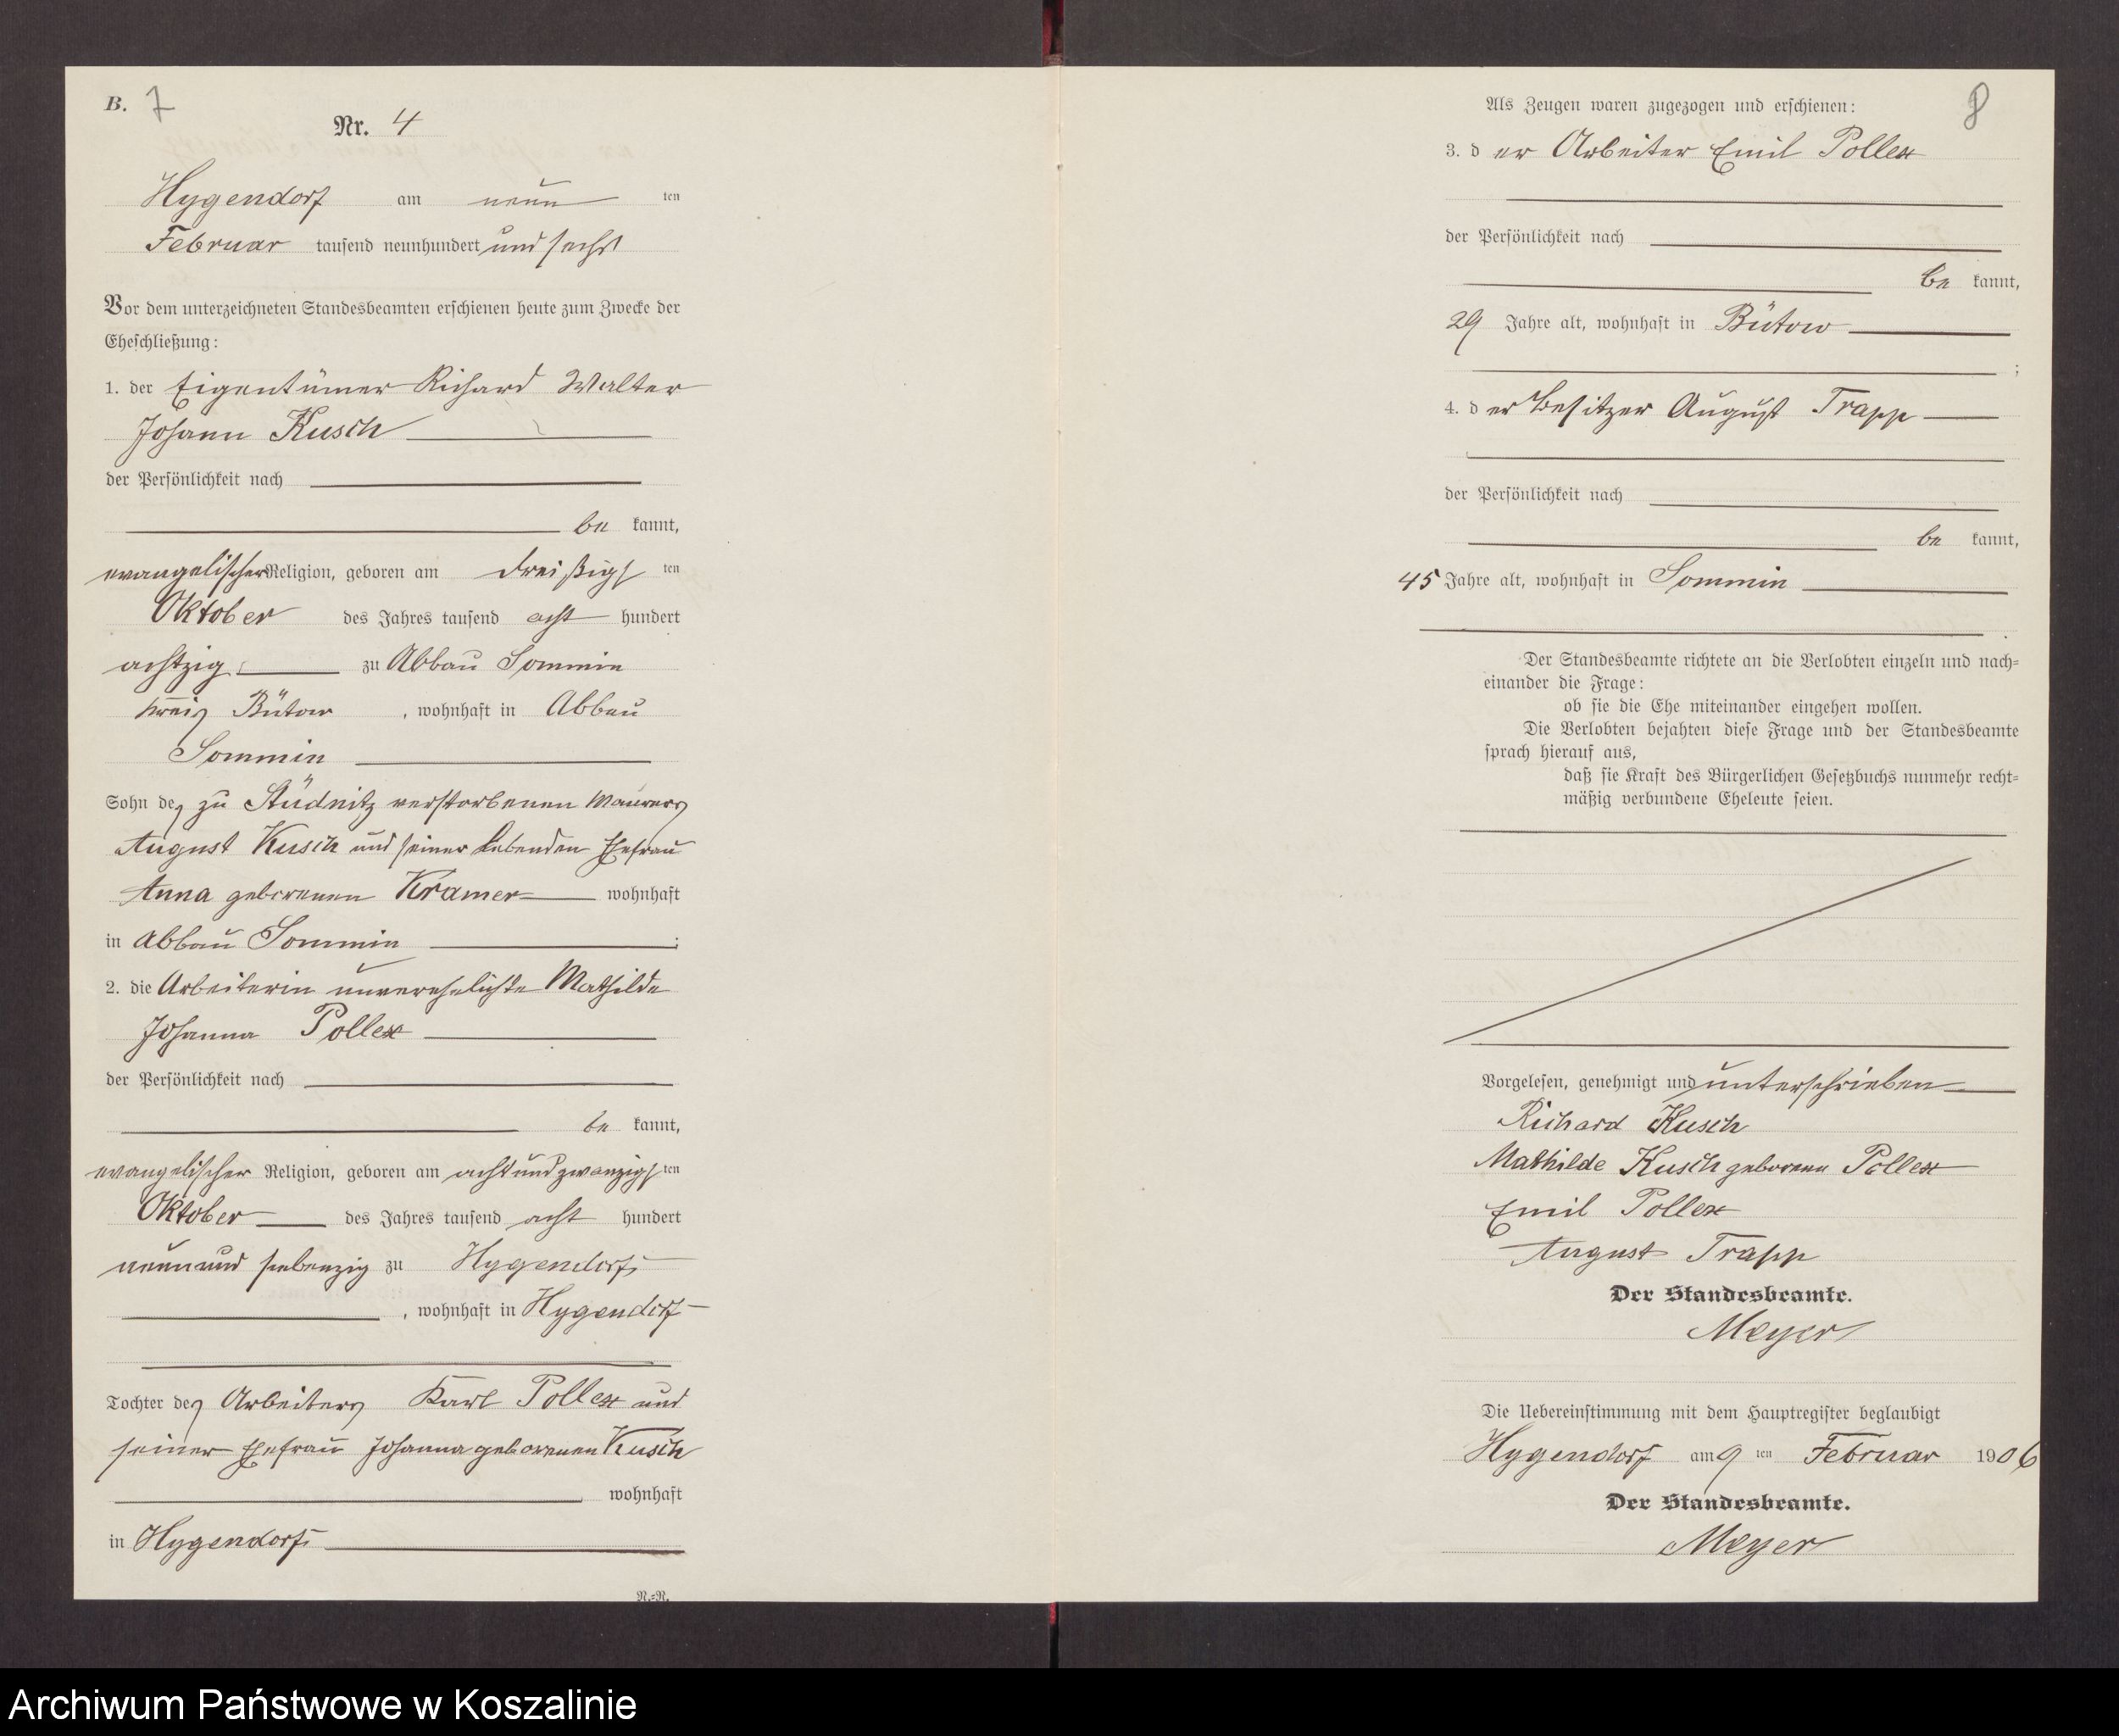 B. 7
Nr. 4
Hygendorf am neun ten
Februar tausend neunhundert und sechs
Vor dem unterzeichneten Standesbeamten erschienen heute zum Zwecke der
Eheschließung:
1. der Eigentümer Richard Walter
Johann Kusch
der Persönlichkeit nach
be kannt,
evangelischer Religion, geboren am dreißigs ten
Oktober des Jahres tausend acht hundert
achtzig zu Abbau Sommin
Kreis Bütow, wohnhaft in Abbau
Sommin
Sohn des zu Stüdnitz verstorbenen Maurers
August Kusch und seiner lebenden Ehefrau
Anna geborenen Kramer wohnhaft
in Abbau Sommin ;
2. die Arbeiterin unverehelichte Mathilde
Johanna Pollex
der Persönlichkeit nach
be kannt,
evangelischer Religion, geboren am achtundzwanzigs ten
Oktober des Jahres tausend acht hundert
neunund siebenzig zu Hygendorf
, wohnhaft in Hygendorf
Tochter des Arbeiters Karl Pollex und
seiner Ehefrau Johanna geborenen Kusch
wohnhaft
in Hygendorf
N.-N.
8
Als Zeugen waren zugezogen und erschienen:
3. d er Arbeiter Emil Pollex
der Persönlichkeit nach
be kannt,
29 Jahre alt, wohnhaft in Bütow
;
4. d er Besitzer August Trapp
der Persönlichkeit nach
be kannt,
45 Jahre alt, wohnhaft in Sommin
.
Der Standesbeamte richtete an die Verlobten einzeln und nach-
einander die Frage:
ob sie die Ehe miteinander eingehen wollen.
Die Verlobten bejahten diese Frage und der Standesbeamte
sprach hierauf aus,
daß sie Kraft des Bürgerlichen Gesetzbuchs nunmehr recht-
mäßig verbundene Eheleute seien.
Vorgelesen, genehmigt und unterschrieben
Richard Kusch
Mathilde Kusch geborene Pollex
Emil Pollex
August Trapp
Der Standesbeamte.
Meyer
Die Uebereinstimmung mit dem Hauptregister beglaubigt
Hygendorf am 9 ten Februar 1906
Der Standesbeamte.
Meyer
Archiwum Państwowe w Koszalinie